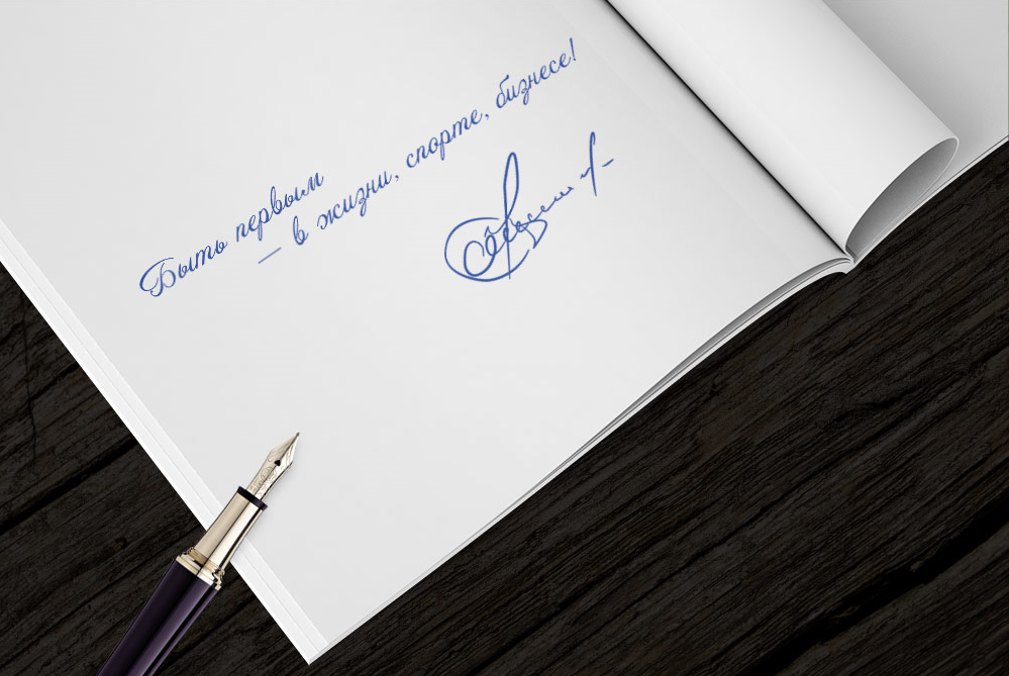 Быть первым
— в жизни, спорте, бизнесе!